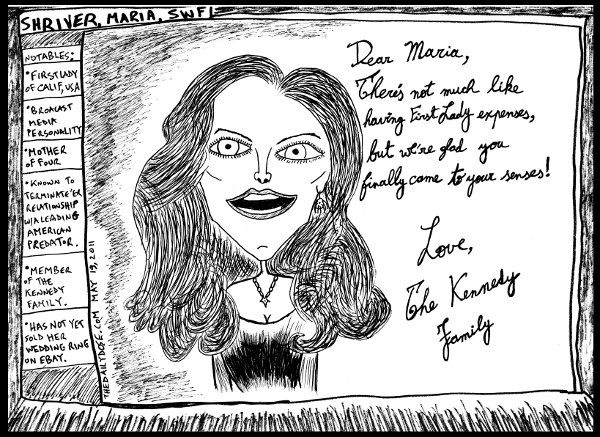 SHRIVER, MARIA, SWF!
NOTABLES:
*FIRST LADY
OF CALIF, USA
*BROACAST
MEDIA
PERSONALITY
*MOTHER
OF FOUR
*KNOWN TO
TERMINATE'ER
RELATIONSHIP
W/A LEADING
AMERICAN
PREDATOR.
*MEMBER
OF THE
KENNEDY
FAMILY.
*HAS NOT YET
SOLD HER
WEDDING RING
ON EBAY.
THEDAILYDOSE.COM MAY 19, 2011
Dear Maria,
There's not much like
having First Lady expenses,
but we're glad you
finally came to your senses!
Love,
The Kennedy
Family